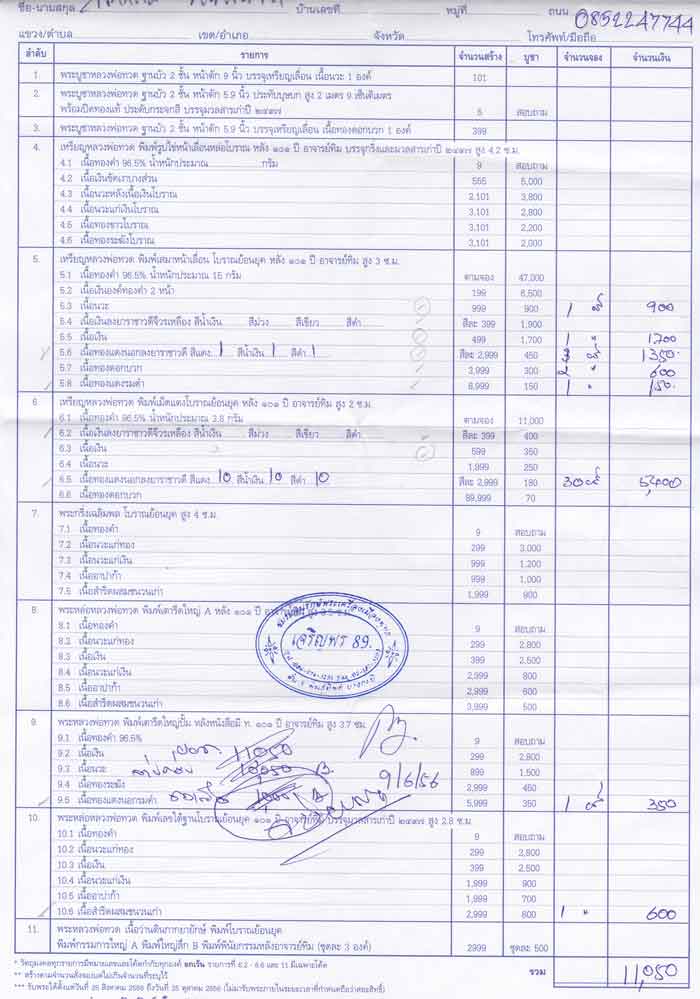 ชื่อ-นามสกุล บ้านเลขที่ หมู่ที่ ถนน 0852247744
แขวง/ตำบล เขต/อำเภอ จังหวัด โทรศัพท์/มือถือ
ลำดับ รายการ จำนวนสร้าง บูชา จำนวนจอง จำนวนเงิน
1. พระบูชาหลวงพ่อทวด ฐานบัว 2 ชั้น หน้าตัก 9 นิ้ว บรรจุเหรียญเลื่อน เนื้อนวะ 1 องค์ 101
2. พระบูชาหลวงพ่อทวด ฐานบัว 2 ชั้น หน้าตัก 5.9 นิ้ว ประทับบุษบก สูง 2 เมตร 9 เซ็นติเมตร
พร้อมปิดทองแท้ ประดับกระจกสี บรรจุมวลสารเก่าปี ๒๔๙๗ 5 สอบถาม
3. พระบูชาหลวงพ่อทวด ฐานบัว 2 ชั้น หน้าตัก 5.9 นิ้ว บรรจุเหรียญเลื่อน เนื้อทองดอกบวก 1 องค์ 399
4. เหรียญหลวงพ่อทวด พิมพ์รูปไข่หน้าเลื่อนหล่อโบราณ หลัง ๑๐๑ ปี อาจารย์ทิม บรรจุกริ่งและมวลสารเก่าปี ๒๔๙๗ สูง 4.2 ซ.ม.
4.1 เนื้อทองคำ 96.5% น้ำหนักประมาณ กรัม 9 สอบถาม
4.2 เนื้อเงินขัดเงาบางส่วน 555 5,000
4.3 เนื้อนวะหลังเนื้อเงินโบราณ 2,101 3,800
4.4 เนื้อนวะแก่เงินโบราณ 3,101 2,800
4.5 เนื้อทองขาวโบราณ 3,101 2,200
4.6 เนื้อทองระฆังโบราณ 3,101 2,000
5. เหรียญหลวงพ่อทวด พิมพ์เสมาหน้าเลื่อน โบราณย้อนยุค หลัง ๑๐๑ ปี อาจารย์ทิม สูง 3 ซ.ม.
5.1 เนื้อทองคำ 96.5% น้ำหนักประมาณ 15 กรัม ตามจอง 47,000
5.2 เนื้อเงินองค์ทองคำ 2 หน้า 199 6,500
5.3 เนื้อนวะ 999 900 1 900
5.4 เนื้อเงินลงยาราชาวดีจีวรเหลือง สีน้ำเงิน สีม่วง สีเขียว สีดำ สีละ 399 1,900
5.5 เนื้อเงิน 499 1,700 1 " 1700
5.6 เนื้อทองแดงนอกลงยาราชาวดี สีแดง 1 สีน้ำเงิน 1 สีดำ 1 สีละ 2,999 450 3 1350
5.7 เนื้อทองดอกบวก 3,999 300 2 " 600
5.8 เนื้อทองแดงรมดำ 6,999 150 1 " 150.
6. เหรียญหลวงพ่อทวด พิมพ์เม็ดแตงโบราณย้อนยุค หลัง ๑๐๑ ปี อาจารย์ทิม สูง 2 ซ.ม.
6.1 เนื้อทองคำ 96.5% น้ำหนักประมาณ 3.8 กรัม ตามจอง 11,000
6.2 เนื้อเงินลงยาราชาวดีจีวรเหลือง สีน้ำเงิน สีม่วง สีเขียว สีดำ สีละ 399 400
6.3 เนื้อเงิน 599 350
6.4 เนื้อนวะ 1,999 250
6.5 เนื้อทองแดงนอกลงยาราชาวดี สีแดง 10 สีน้ำเงิน 10 สีดำ 10 สีละ 2,999 180 30 5,400
6.6 เนื้อทองดอกบวก 89,999 70
7. พระกริ่งเฉลิมพล โบราณย้อนยุค สูง 4 ซ.ม.
7.1 เนื้อทองคำ 9 สอบถาม
7.2 เนื้อนวะแก่ทอง 299 3,000
7.3 เนื้อนวะแก่เงิน 999 1,200
7.4 เนื้ออาปาก้า 999 1,000
7.5 เนื้อสำริดผสมชนวนเก่า 1,999 900
8. พระหล่อหลวงพ่อทวด พิมพ์เตารีดใหญ่ A หลัง ๑๐๑ ปี
8.1 เนื้อทองคำ 9 สอบถาม
8.2 เนื้อนวะแก่ทอง 299 2,800
8.3 เนื้อเงิน 399 2,500
8.4 เนื้อนวะแก่เงิน 2,999 800
8.5 เนื้ออาปาก้า 2,999 600
8.6 เนื้อสำริดผสมชนวนเก่า 3,999 500
เจริญพร 89.
9. พระหลวงพ่อทวด พิมพ์เตารีดใหญ่ปั๊ม หลังหนังสือมี ท. ๑๐๑ ปี อาจารย์ทิม สูง 3.7 ซ.ม.
9.1 เนื้อทองคำ 96.5%
9.2 เนื้อเงิน 11,050 299 2,800
9.3 เนื้อนวะ 10,050 899 1,500
9.4 เนื้อทองระฆัง 9/6/56 2,999 450
9.5 เนื้อทองแดงนอกรมดำ 5,999 350 1 350
10. พระหล่อหลวงพ่อทวด พิมพ์เลขใต้ฐานโบราณย้อนยุค ๑๐๑ ปี อาจารย์ทิม บรรจุมวลสารเก่าปี ๒๔๙๗ สูง 2.8 ซ.ม.
10.1 เนื้อทองคำ 9 สอบถาม
10.2 เนื้อนวะแก่ทอง 299 2,800
10.3 เนื้อเงิน 399 2,500
10.4 เนื้อนวะแก่เงิน 1,999 900
10.5 เนื้ออาปาก้า 1,999 700
10.6 เนื้อสำริดผสมชนวนเก่า 2,999 600 1 " 600
11. พระหลวงพ่อทวด เนื้อว่านดินกากยายักษ์ พิมพ์โบราณย้อนยุค
พิมพ์กรรมการใหญ่ A พิมพ์ใหญ่ลึก B พิมพ์พินัยกรรมหลังอาจารย์ทิม (ชุดละ 3 องค์) 2999 ชุดละ 500
* วัตถุมงคลทุกรายการมีหมายเลขและโค้ดกำกับทุกองค์ ยกเว้น รายการที่ 6.2 - 6.6 และ 11 มีเฉพาะโค้ด
รวม 11,050
** สร้างตามจำนวนสั่งจองแต่ไม่เกินจำนวนที่ระบุไว้
*** รับพระได้ตั้งแต่วันที่ 25 สิงหาคม 2556 ถึงวันที่ 25 ตุลาคม 2556 (ไม่มารับพระภายในระยะเวลาที่กำหนดถือว่าสละสิทธิ์)